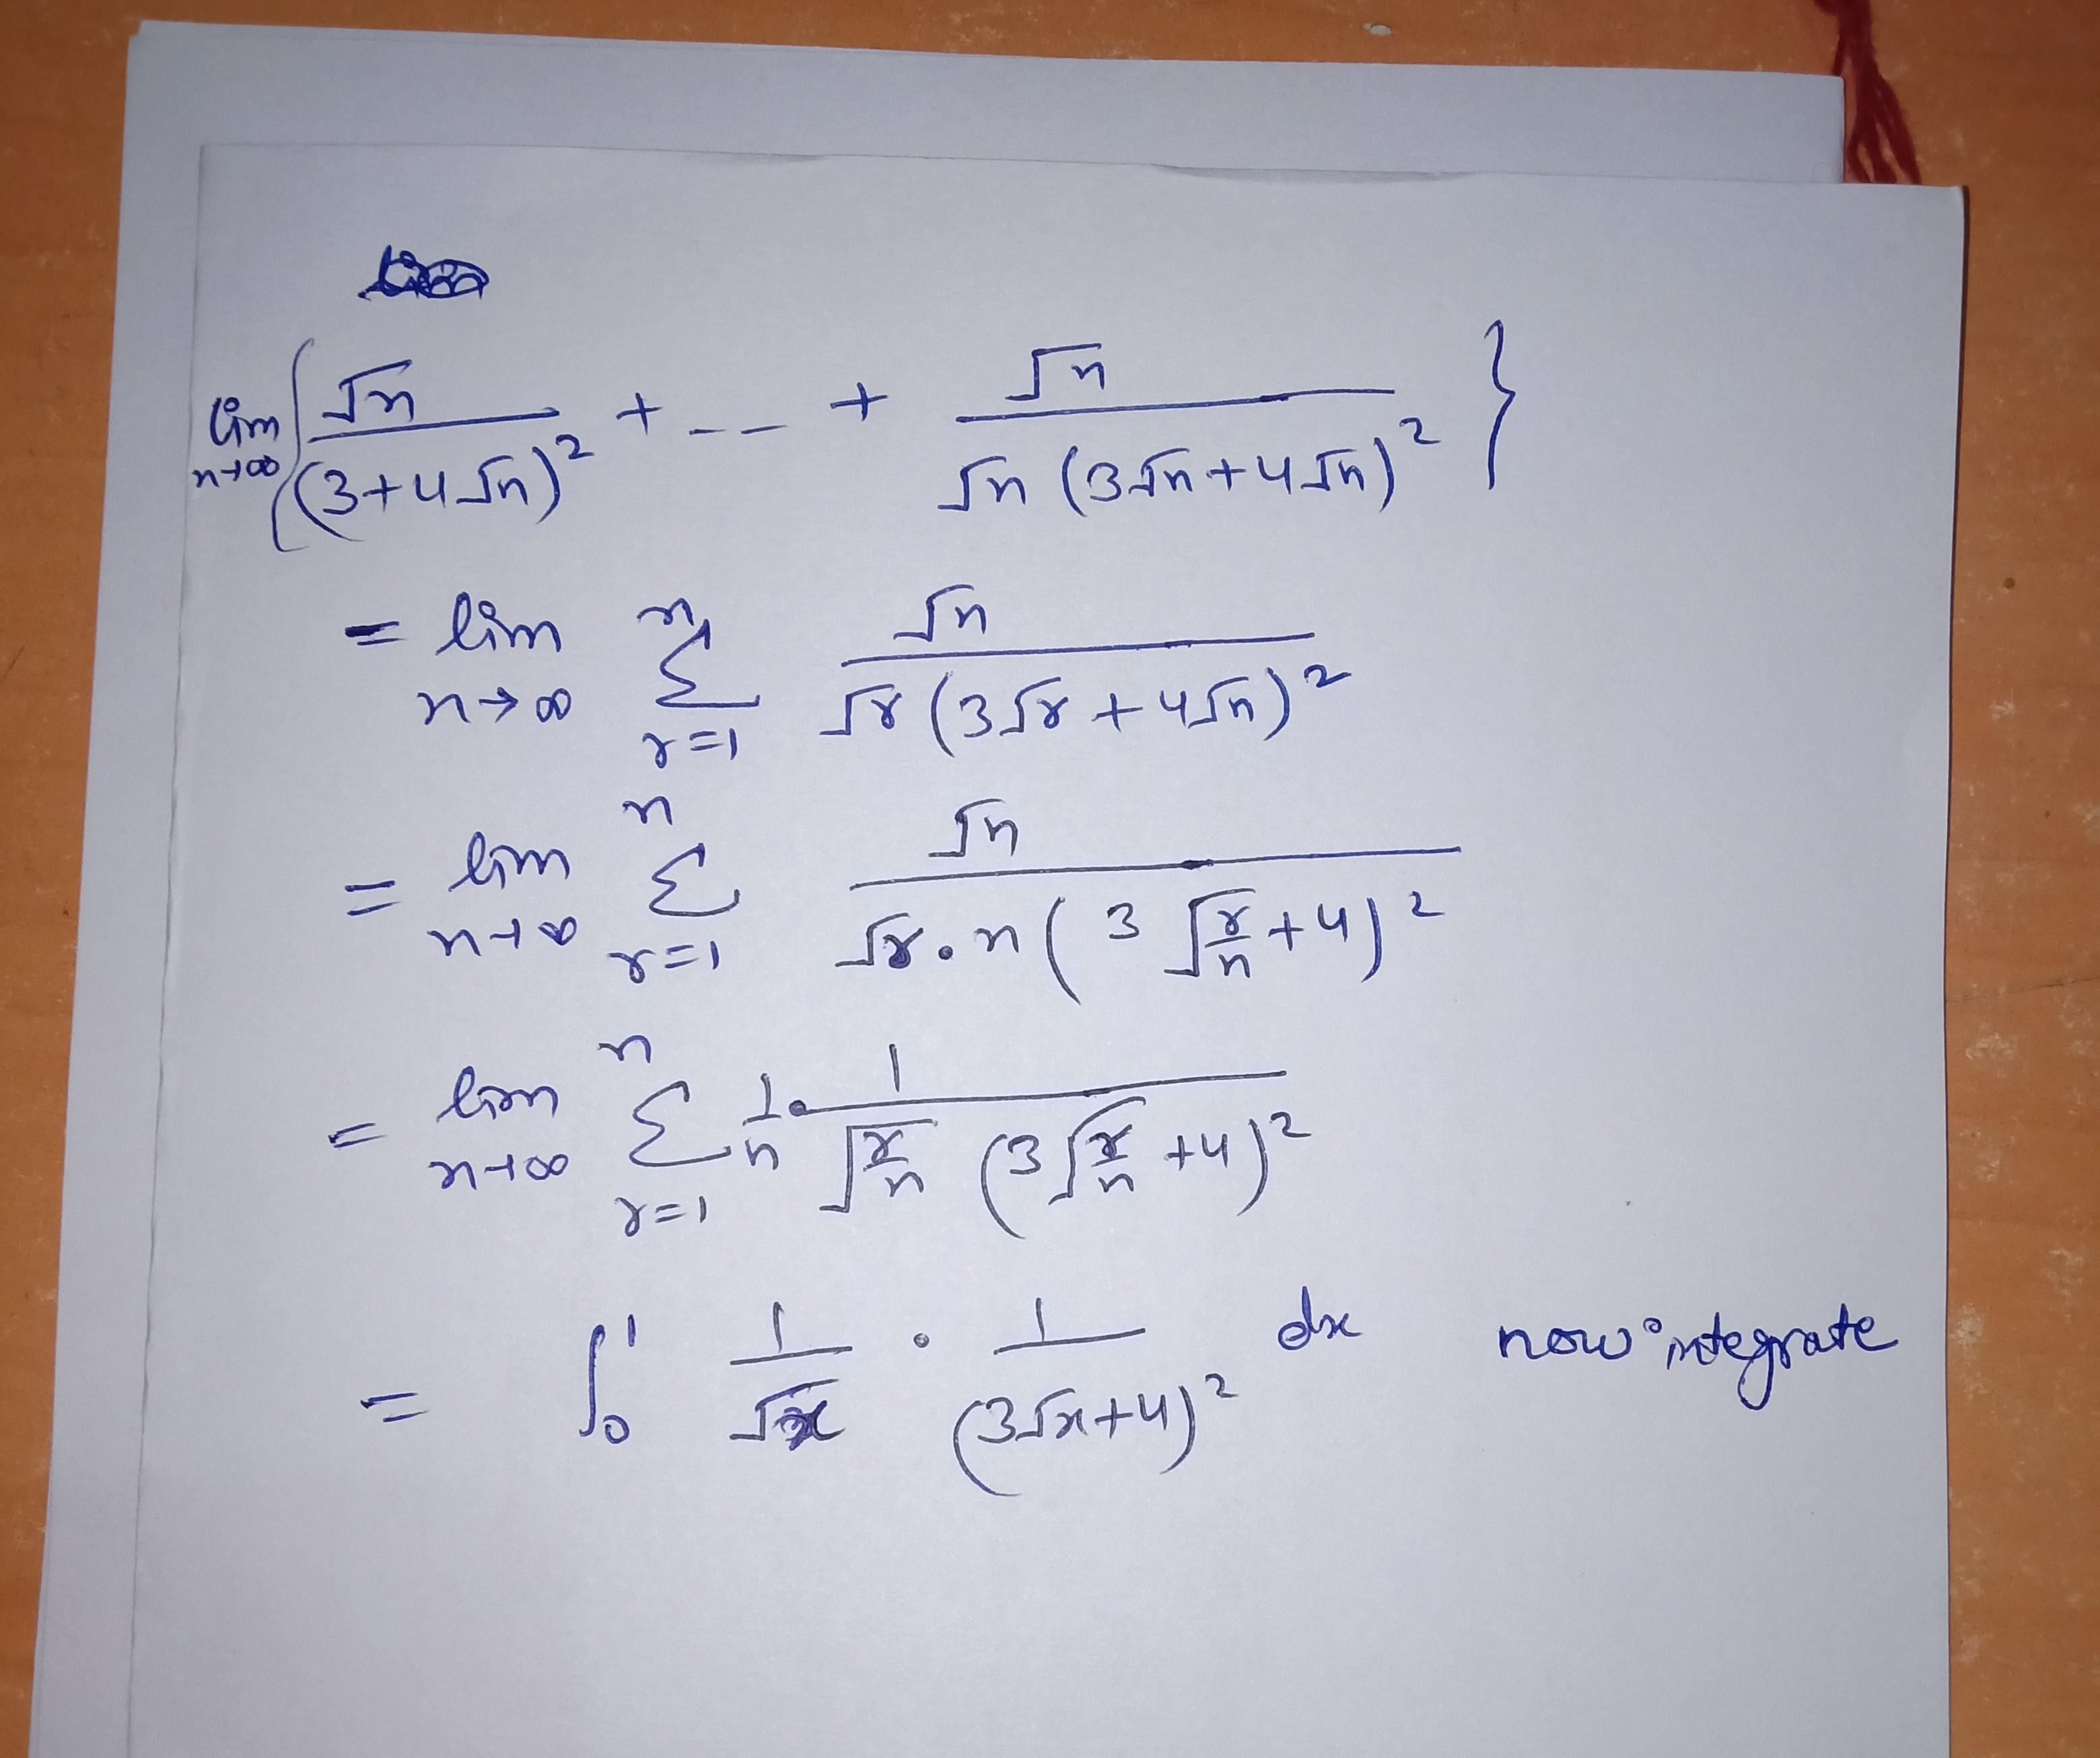 lim n→∞ { √n / (3+4√n)² + -- + √n / √n (3√n+4√n)² }
= lim n→∞ n Σ r=1 √n / √r (3√r + 4√n)²
= lim n→∞ n Σ r=1 √n / √r . n ( 3 √r/n + 4)²
= lim n→∞ n Σ r=1 1/n . 1 / √r/n (3√r/n +4)²
= ∫₀¹ 1/√x . 1/(3√x+4)² dx now integrate